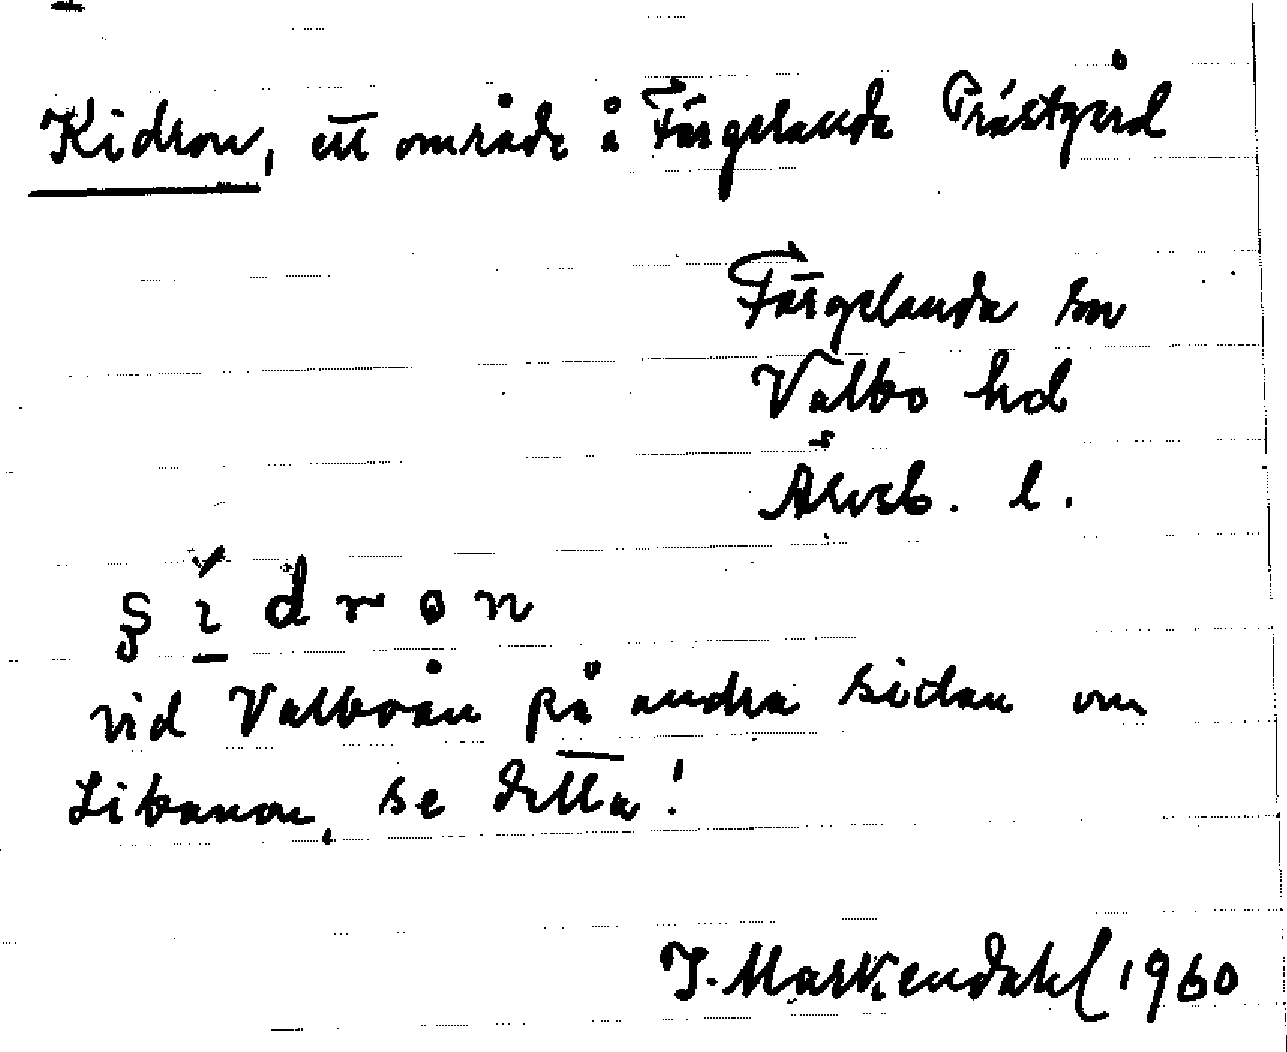 Kidron, ett område å Färgelanda Prästgård
Färgelanda sn
Valbo hd
Älvsb. l.
ʂ ɩ̱́ d r o n
vid Valboån på andra sidan om
Libanon, se detta!
J. Markendahl 1960